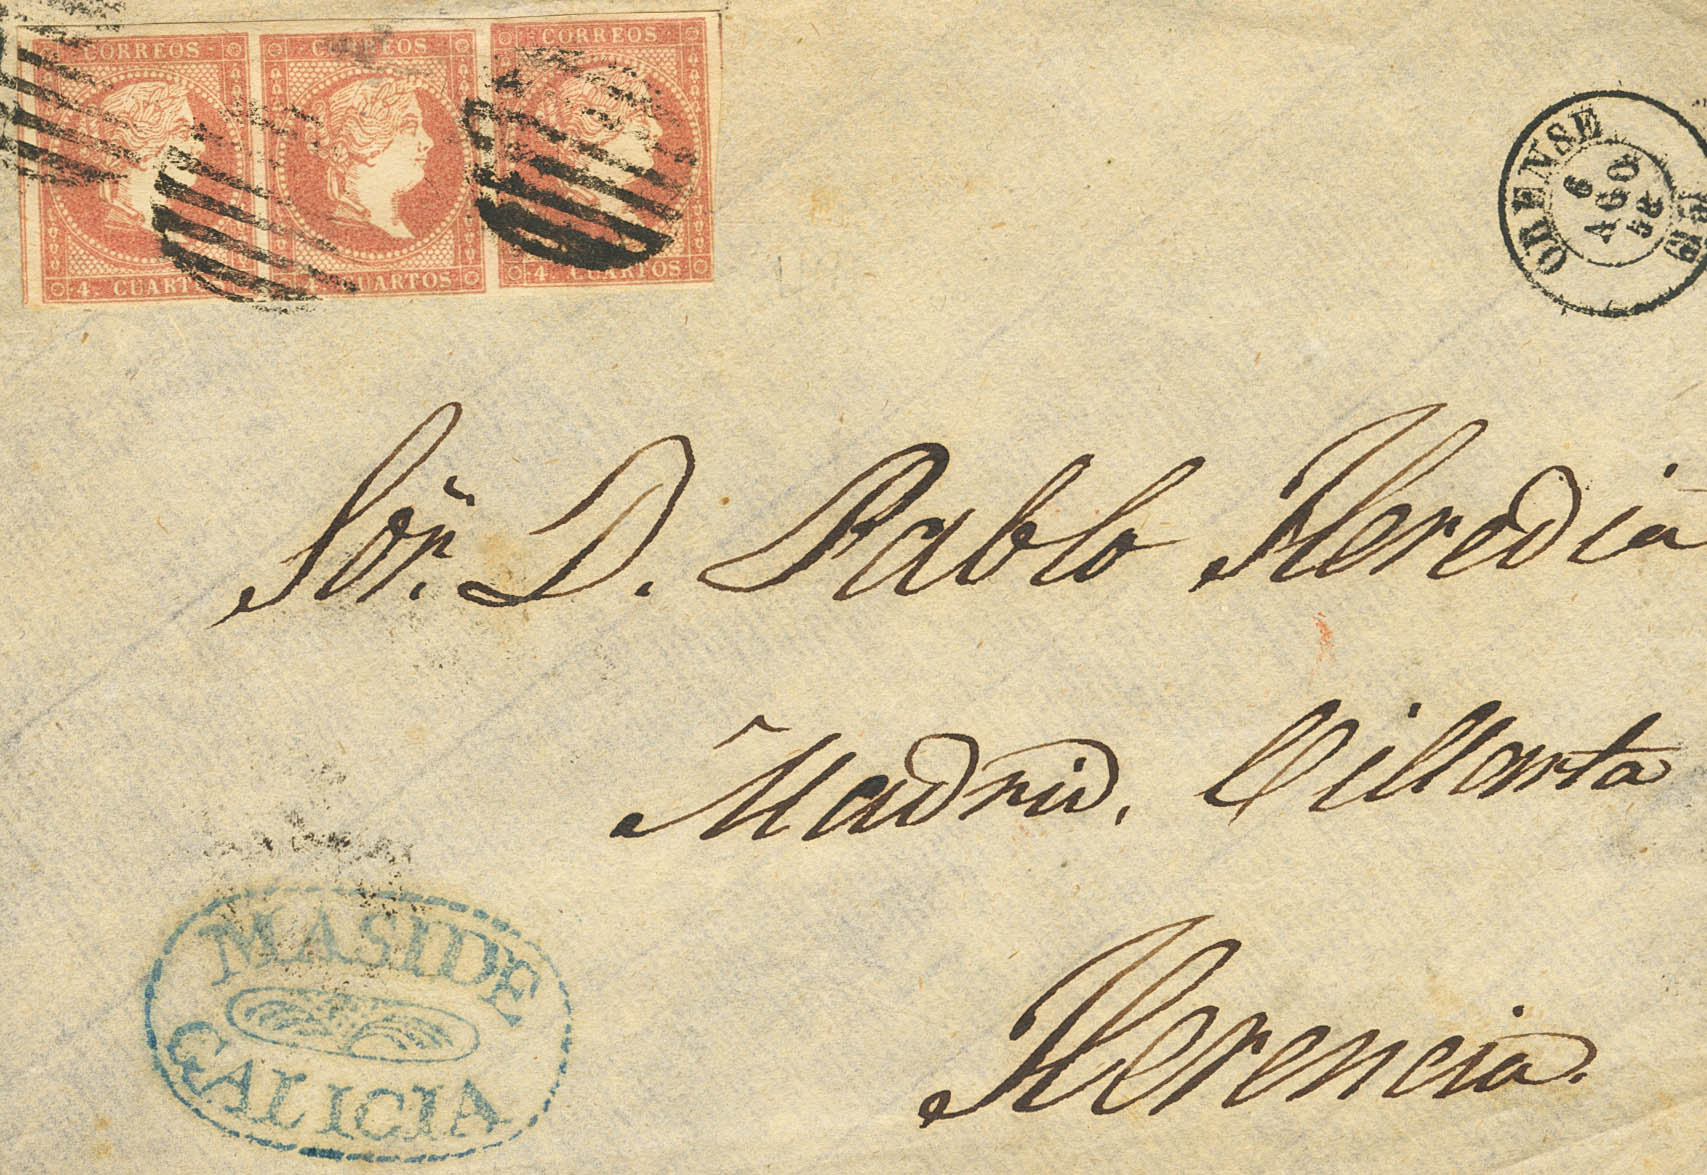 CORREOS CORREOS CORREOS
4 CUARTOS 4 CUARTOS 4 CUARTOS
ORENSE
6
AGO
Sor. D. Pablo Heredia
Madrid, Villarta
Herencia.
MASIDE
GALICIA